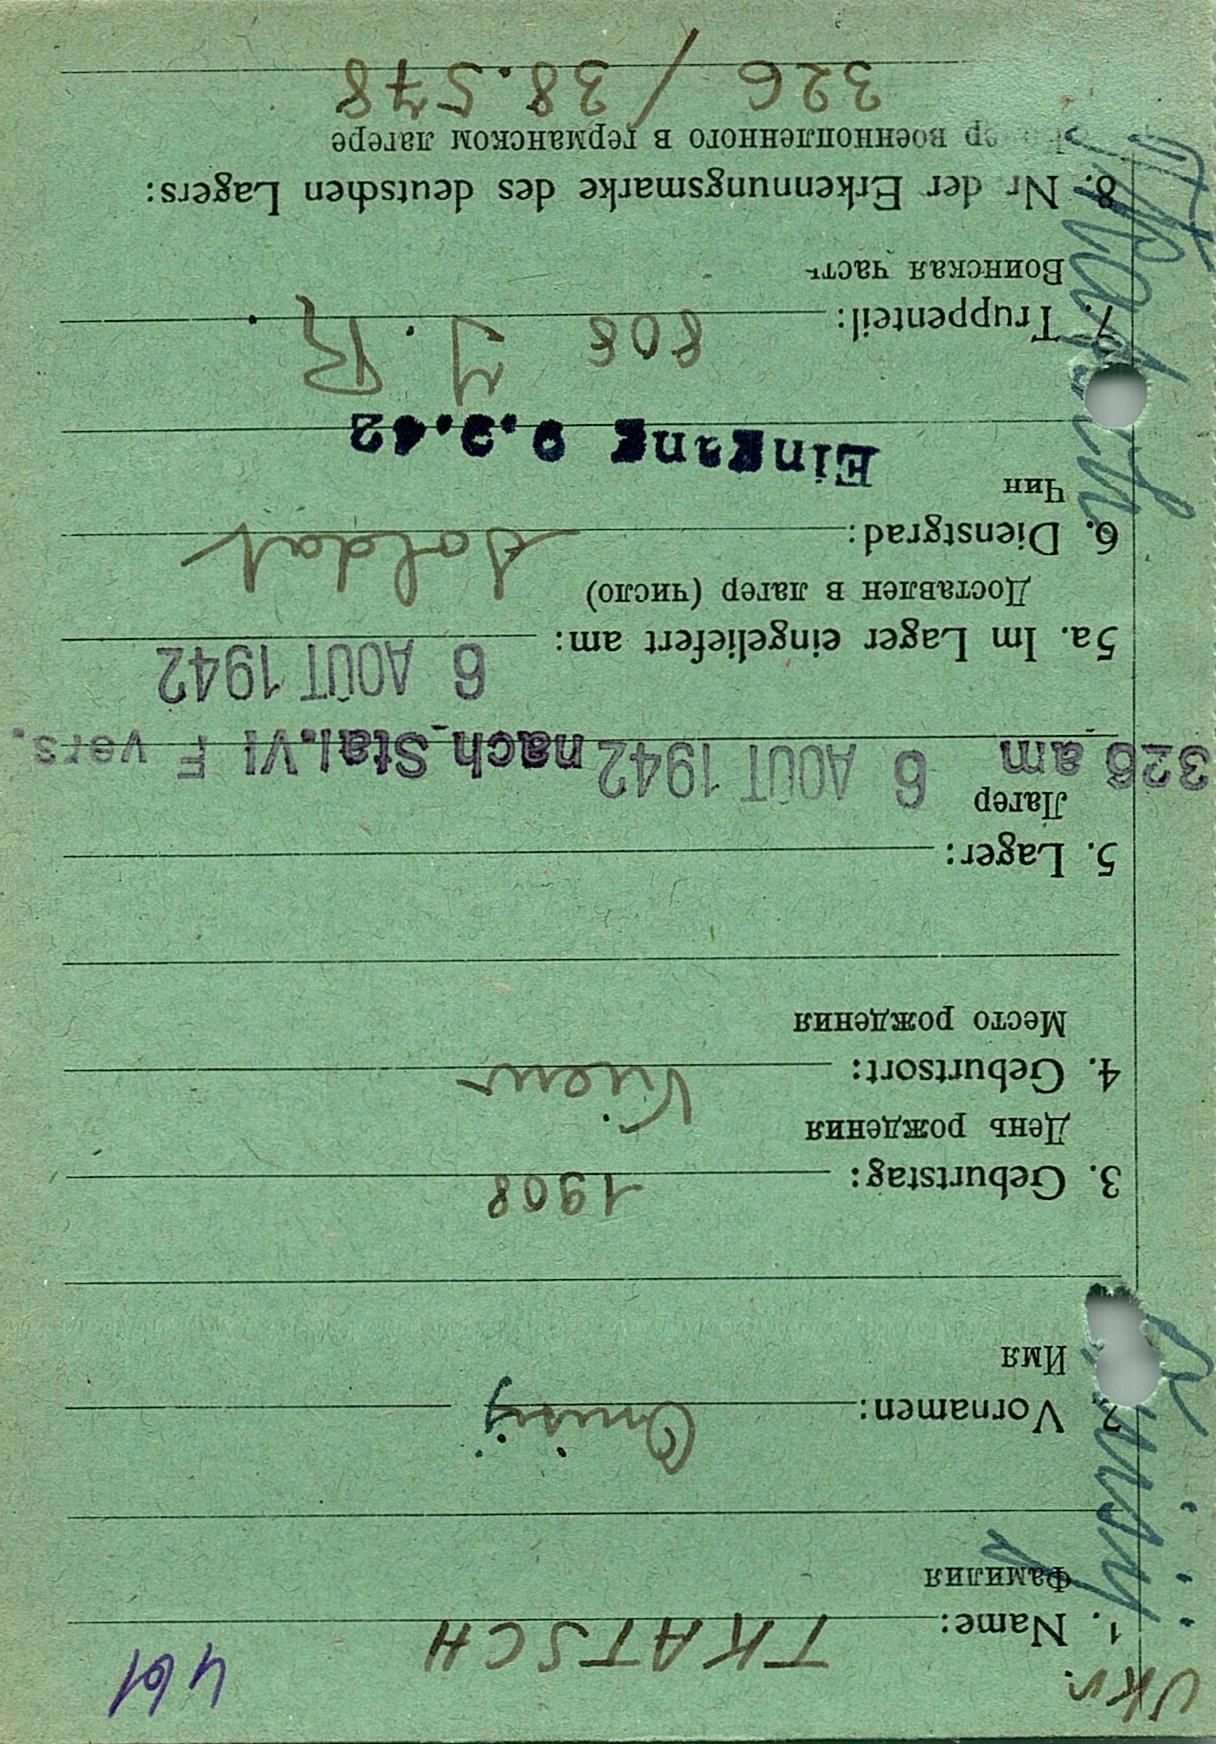 Ukr.
461
1. Name: TKATSCH
Фамилия
2. Vornamen: Onisij
Имя
3. Geburtstag: 1908
День рождения
4. Geburtsort: Kiew
Место рождения
5. Lager:
Лагер
326 am 6 AOUT 1942 nach Stal. VI F vers.
6 AOUT 1942
5a. Im Lager eingeliefert am:
Доставлен в лагер (число)
6. Dienstgrad: Soldat
Чин
Eingang 9.9.42
7. Truppenteil: 808 J. R.
Воинская часть
8. Nr der Erkennungsmarke des deutschen Lagers:
военнопленного в германском лагере
326 / 38.578
Onisij
Tkatsch